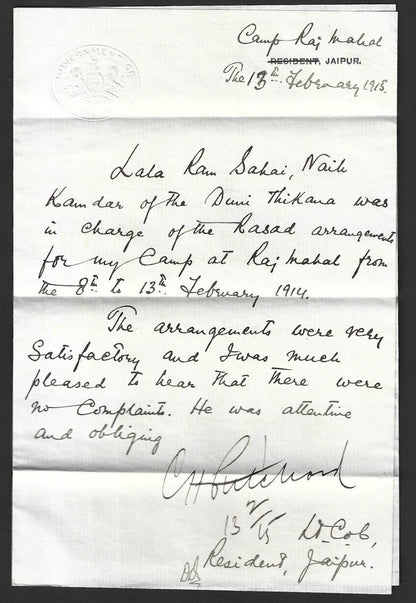 GOVERNMENT OF
Camp Raj Mahal
RESIDENT, JAIPUR.
The 13th February 1915.
Lala Ram Sahai, Naib
Kamdar of the Duni Thikana was
in charge of the Rasad arrangements
for my Camp at Raj Mahal from
the 8th to 13th February 1914.
The arrangements were very
Satisfactory and I was much
pleased to hear that there were
no Complaints. He was attentive
and obliging
13/2/15 Lt. Col.,
Resident, Jaipur.